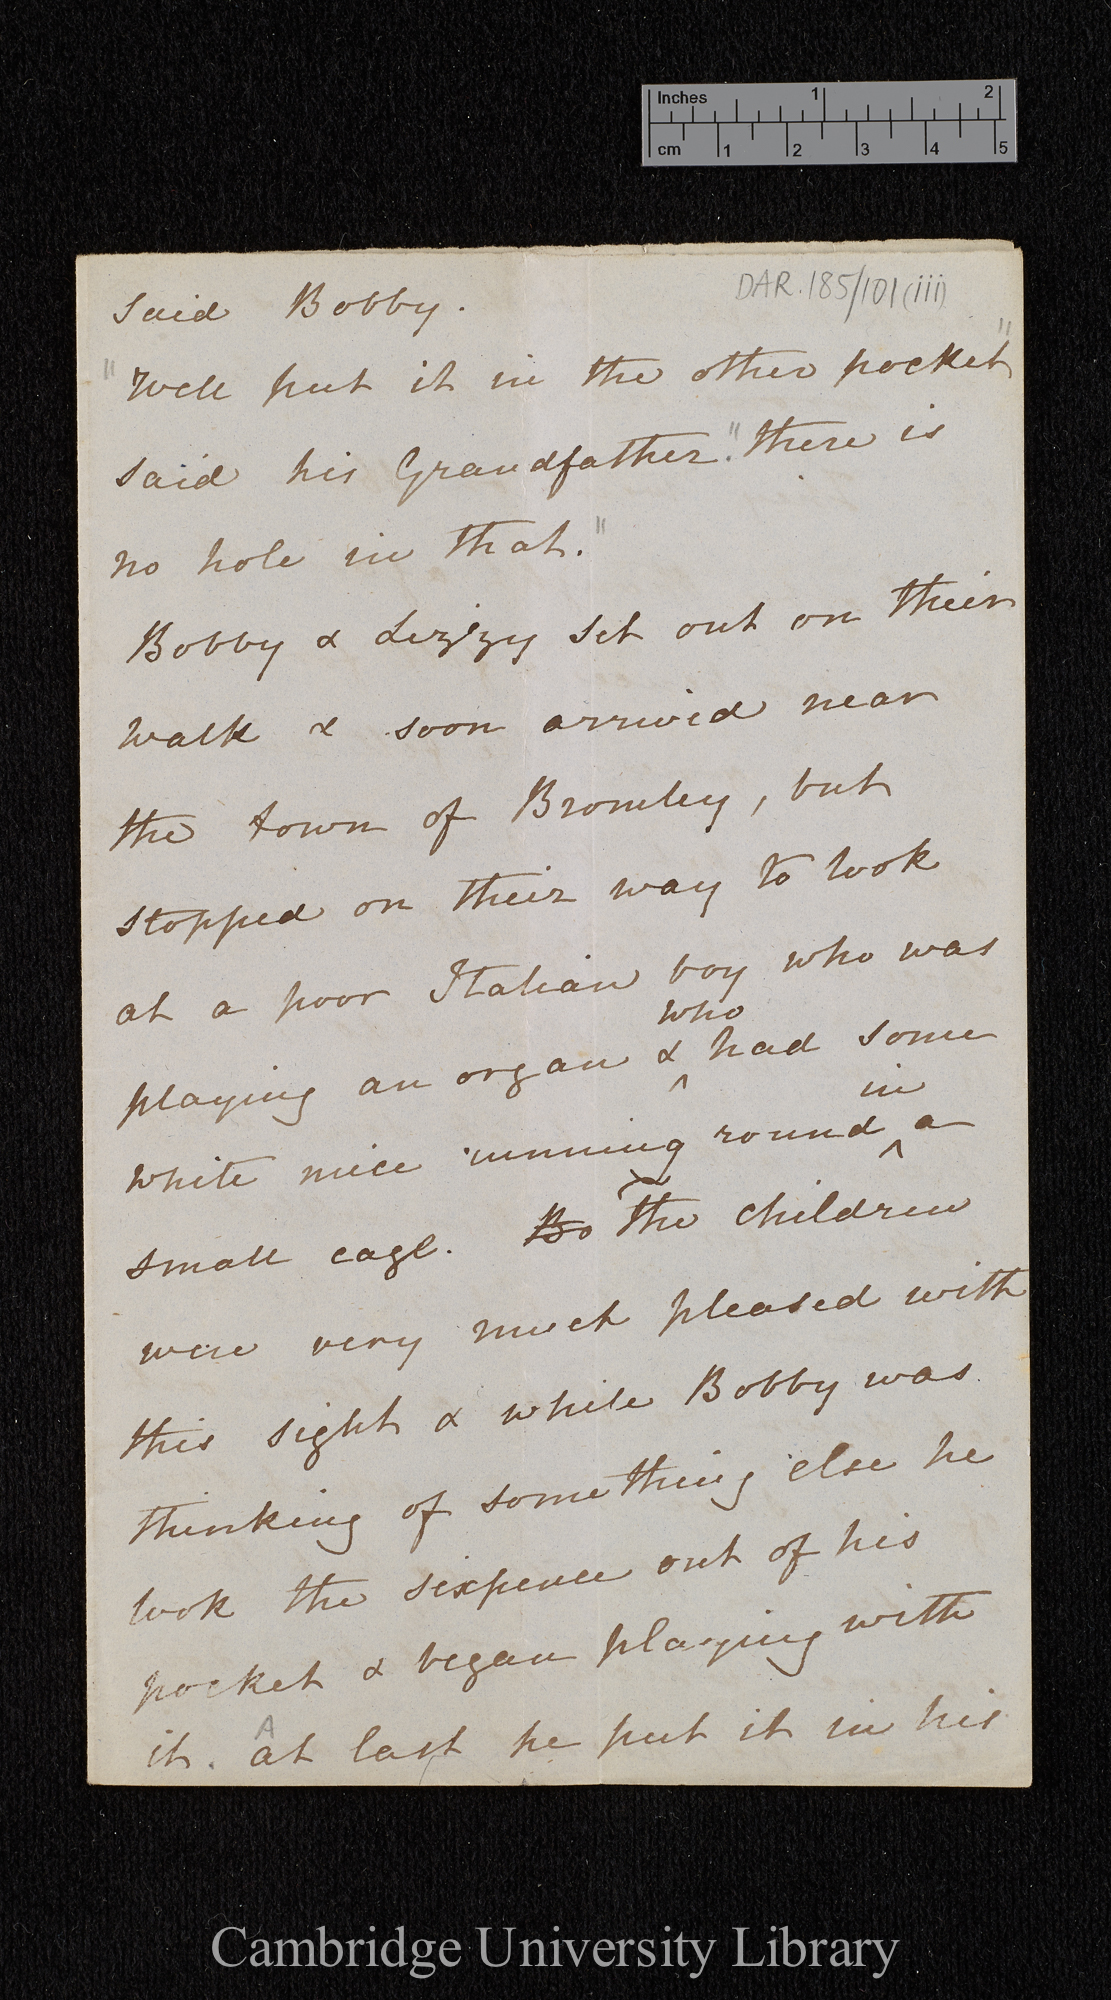 Inches 1 2
cm 1 2 3 4 5
DAR.185/101(iii)
said Bobby.
"Well put it in the other pocket"
said his Grandfather. "there is
no hole in that."
Bobby & Lizzy set out on their
walk & soon arrived near
the town of Bromley, but
stopped on their way to look
at a poor Italian boy who was
who
playing an organ & had some
in
white mice running round a
small cage. Bo the children
were very much pleased with
this sight & while Bobby was
thinking of something else he
took the sixpence out of his
pocket & began playing with
A
it. at last he put it in his
Cambridge University Library